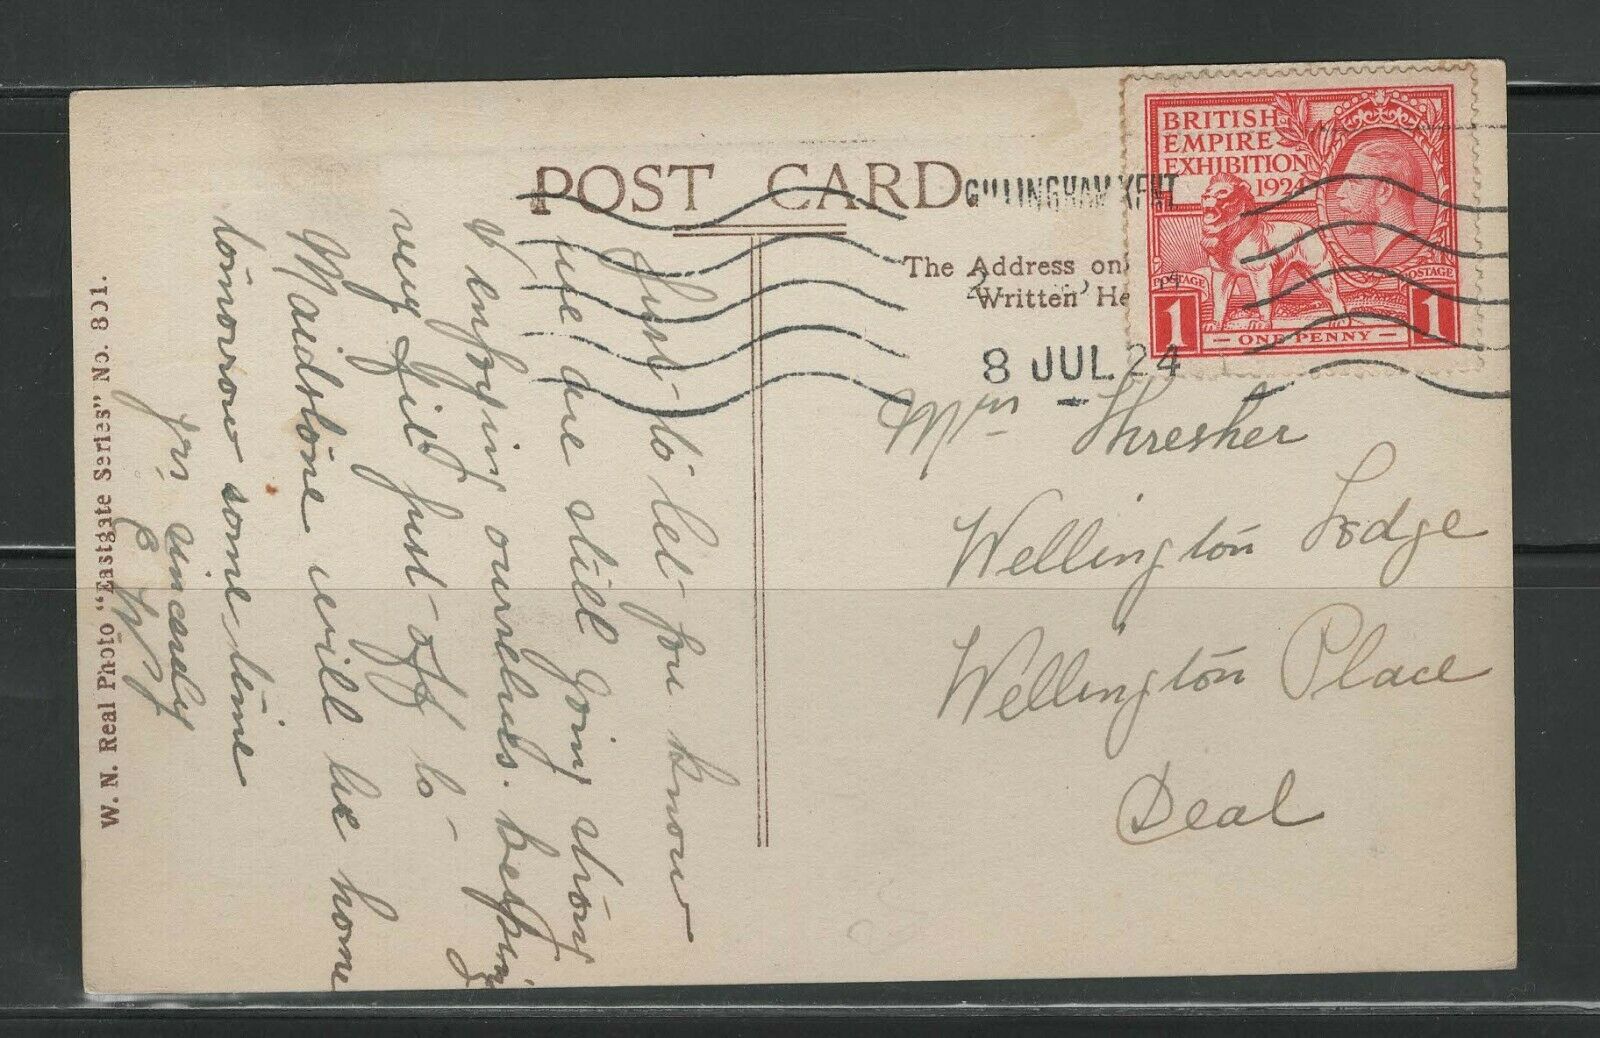 POST CARD
GILLINGHAM KENT
8 JUL 24
BRITISH
EMPIRE
EXHIBITION
1924
POSTAGE
POSTAGE
1
— ONE PENNY —
1
The Address on
Written He
Mrs Thresher
Wellington Lodge
Wellington Place
Deal
Just to let you know
we are still going strong
& enjoying ourselves. keeping
very fit just off to
Maidstone will be home
tomorrow some time
yrs sincerely
W. N. Real Photo "Eastgate Series" No. 801.